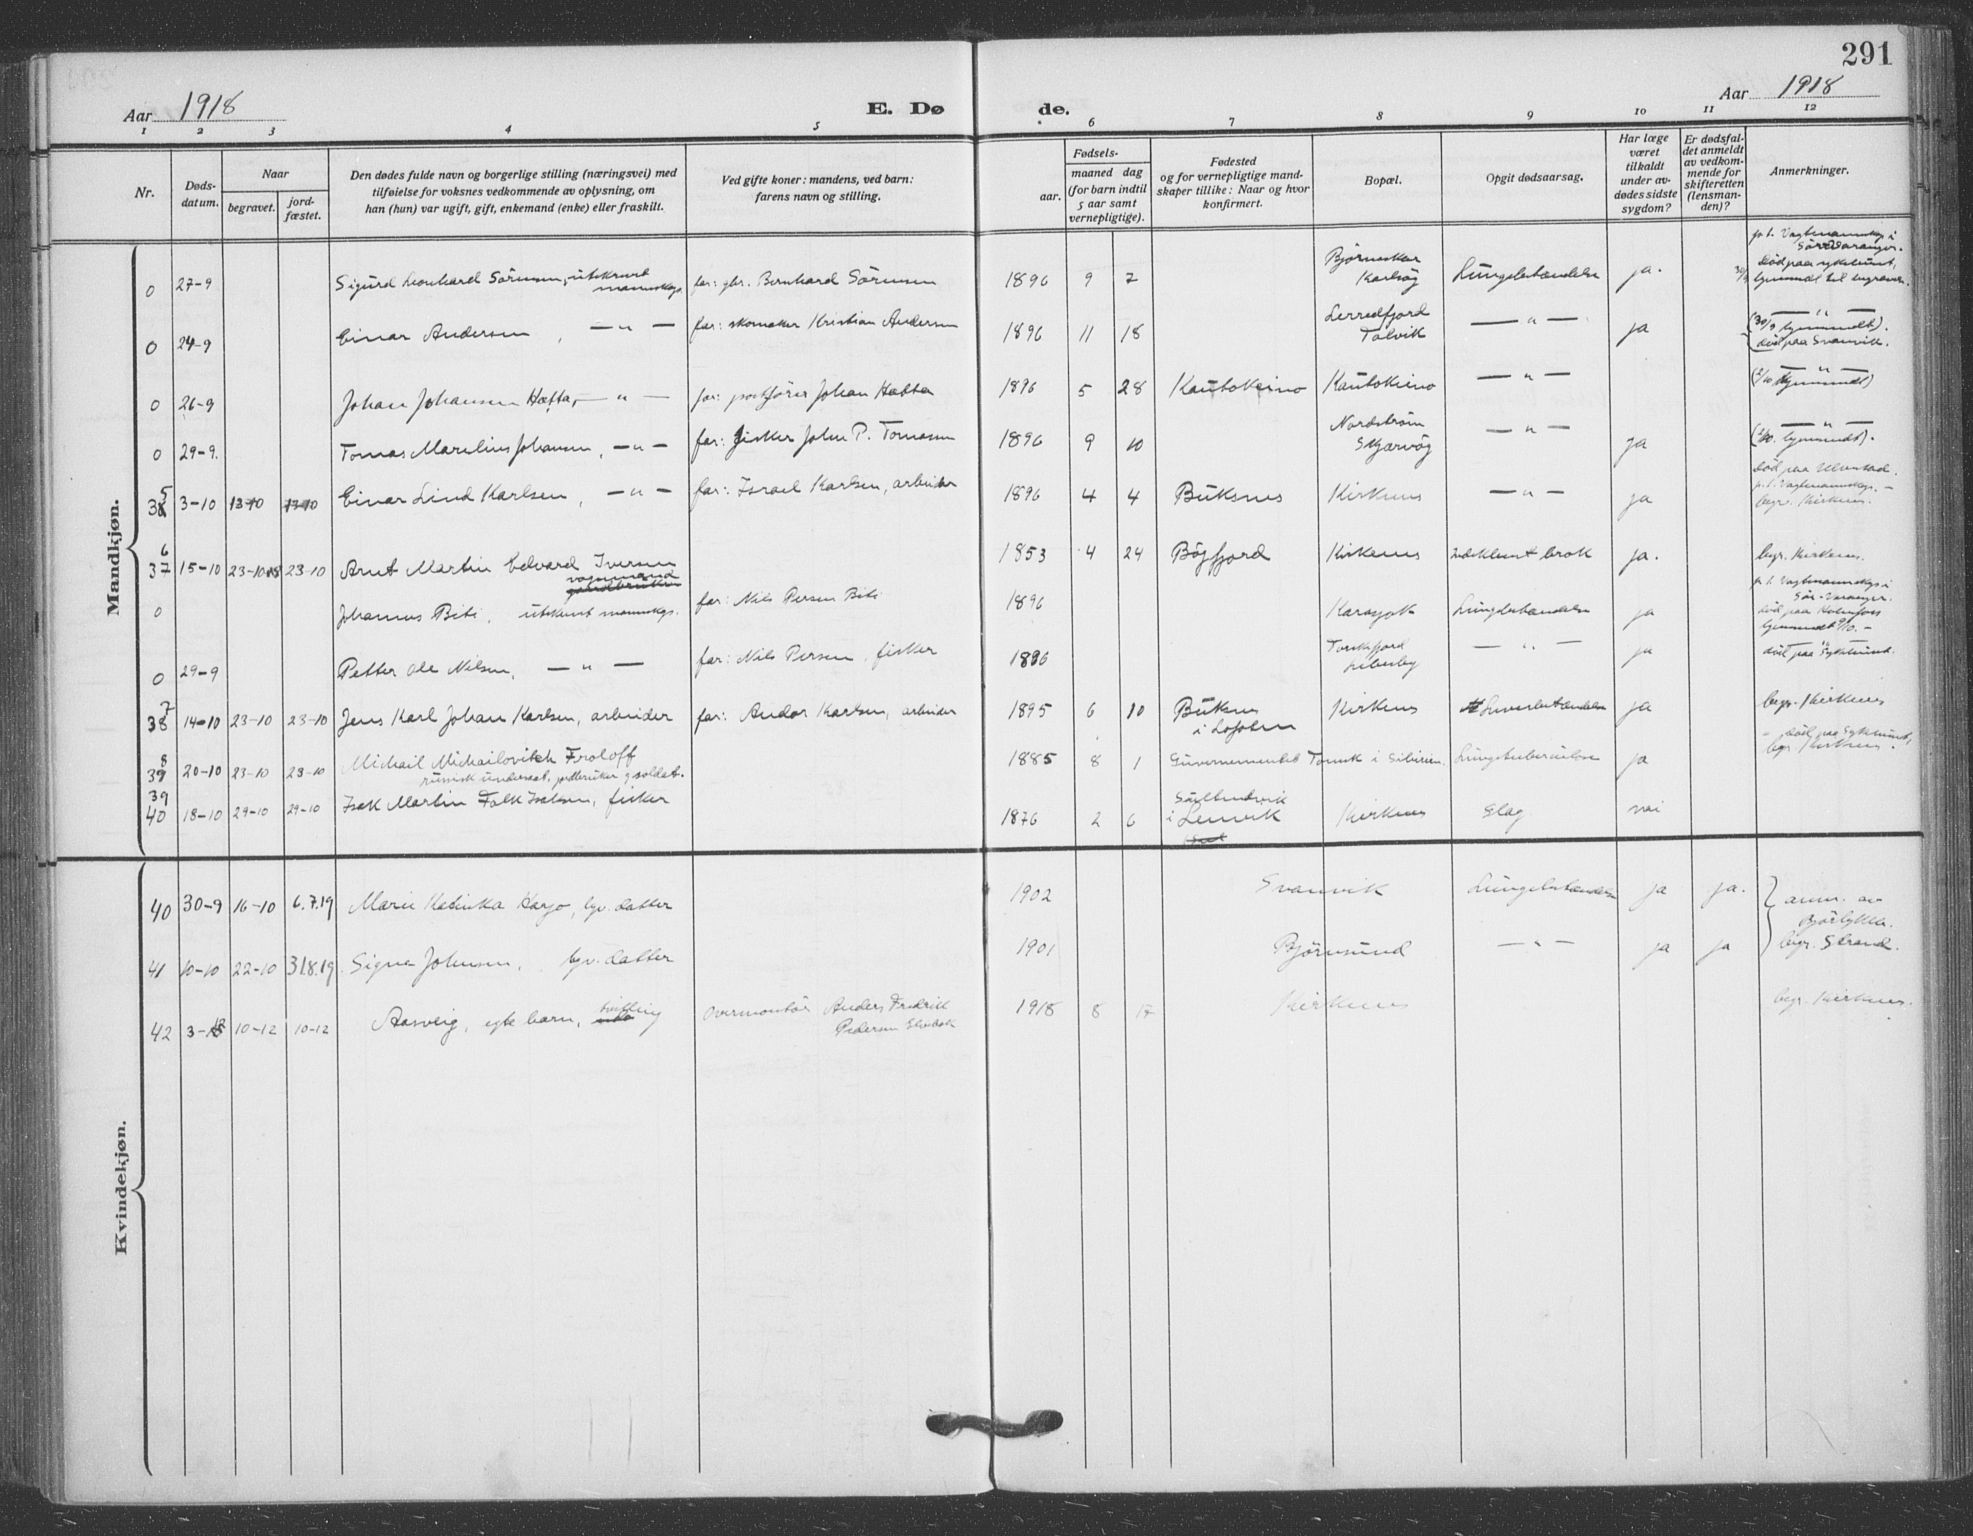 291
Aar 1918 E. Dø de. Aar 1918
1 2 3 4 5 6 7 8 9 10 11 12
Nr.
Døds-
datum.
Naar
begravet.
jord-
fæstet.
Den dødes fulde navn og borgerlige stilling (næringsvei) med
tilføielse for voksnes vedkommende av oplysning, om
han (hun) var ugift, gift, enkemand (enke) eller fraskilt.
Ved gifte koner: mandens, ved barn:
farens navn og stilling.
Fødsels-
aar.
maaned dag
(for barn indtil
5 aar samt
vernepligtige).
Fødested
og for vernepligtige mand-
skaper tillike: Naar og hvor
konfirmert.
Bopæl.
Opgit dødsaarsag.
Har læge
været
tilkaldt
under av-
dødes sidste
sygdom?
Er dødsfal-
det anmeldt
av vedkom-
mende for
skifteretten
(lensman-
den)?
Anmerkninger.
Mandkjøn.
0 27-9 Sigurd Leonhard Sörensen, utskrevet mannskap. far: gbr. Bernhard Sörensen 1896 9 7 Karlsöy Lungebetændelse ja.
0 24-9 Einar Andersen, — " — far: skomaker Kristian Andersen 1896 11 18 Talvik — " — ja (30/9 hjemsendt). död paa Svanvik.
0 26-9 Johan Johansen Hætta, — " — far: postförer Johan Hætta 1896 5 28 Kautokeino Kautokeino — " — — " — (2/10 hjemsendt)
0 29-9. Tomas Marelius Johansen, — " — far: fisker John P. Tomassen 1896 9 10 Nordström Skjærvöy — " — ja — " — (2/10. hjemsendt).
35 3-10 13-10 13-10 Einar Lind Karlsen, — " — far: Israel Karlsen, arbeider 1896 4 4 Buksnes Kirkenes — " — ja begr. Kirkenes.
36 37 15-10 23-10 23-10 Arnt Martin Edvard Iversen vognmand 1853 4 24 Bögfjord Kirkenes indeklemt brok ja. begr. Kirkenes.
0 Johannes Biti, utskrevet mannskap. far: Nils Persen Biti 1896 Karasjok Lungebetændelse ja p.t. Vagtmannskap i Sör-Varanger. död paa Holmfoss hjemsendt 9/10. —
0 29-9 Petter Ole Nilsen, — " — far: Nils Persen, fisker 1896 Torskfjord Lebesby — " — ja — " — död paa Sykehuset.
37 38 14-10 23-10 23-10 Jens Karl Johan Karlsen, arbeider far: Andor Karlsen, arbeider 1895 6 10 Buksnes i Lofoten Kirkenes ja begr. Kirkenes
38 39 20-10 23-10 23-10 Michail Michailovitch Froloff russisk undersaat, jordbruker og soldat. 1885 8 1 Guvernementet Tomsk i Sibirien. Lungetuberculose ja — död paa Sykehuset, begr. Kirkenes.
39 40 18-10 29-10 29-10 Isak Martin Falk Isaksen, fisker 1876 2 6 i Lenvik Kirkenes Slag nei
Kvindekjøn.
40 30-9 16-10 6.7.19 Marie Hedvika Karjo, gv. datter 1902 Svanvik Lungebetændelse ja ja. anm. av
41 10-10 22-10 31.8.19 Signe Johnsen, gv. datter 1901 Björnsund — " — ja ja Björlykke. begr. Strand.
42 3-12 10-12 10-12 Aasveig, egte barn, tvilling Overmontör Anders Fredrik Pedersen 1918 8 17 Kirkenes begr. Kirkenes.